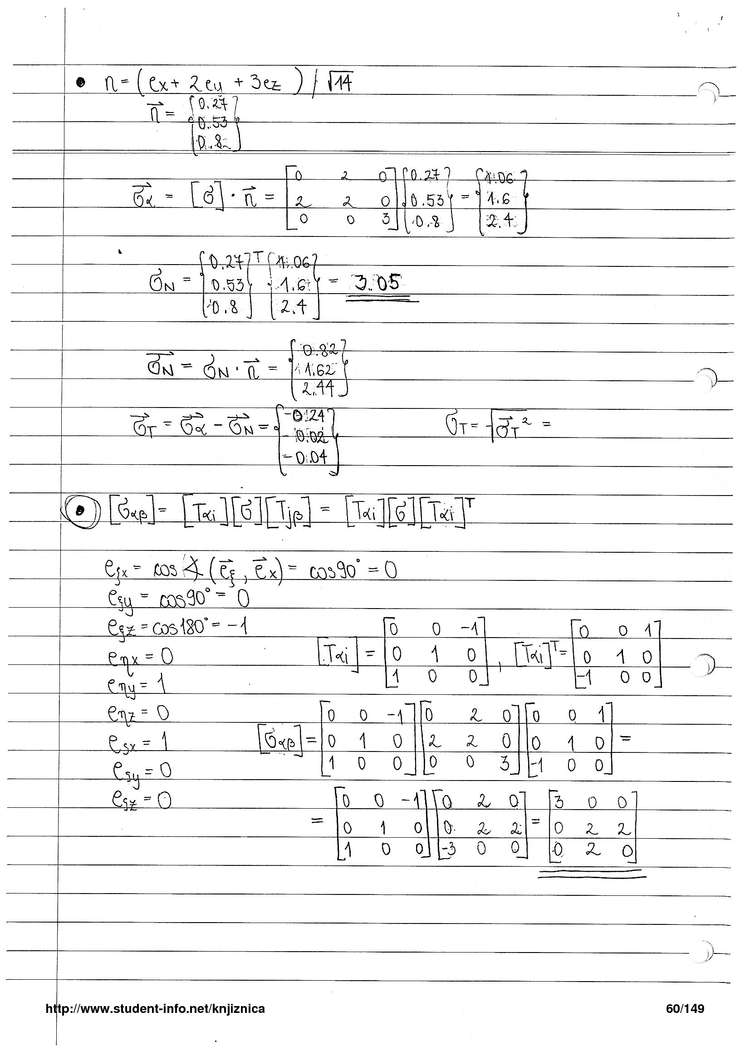 • n = (ex + 2ey + 3ez) / √14
n⃗ = {0.27 0.53 0.8}
σ⃗α = [σ] · n⃗ = [0 2 0; 2 2 0; 0 0 3] {0.27 0.53 0.8} = {1.06 1.6 2.4}
σN = {0.27 0.53 0.8}ᵀ {1.06 1.6 2.4} = 3.05
σ⃗N = σN · n⃗ = {0.82 1.62 2.44}
σ⃗T = σ⃗α - σ⃗N = {-0.24 -0.02 -0.04} σT = √σ⃗T² =
• [σαβ] = [Tαi][σ][Tjβ] = [Tαi][σ][Tαi]ᵀ
eξx = cos∢(e⃗ξ, e⃗x) = cos90° = 0
eξy = cos90° = 0
eξz = cos180° = -1
eηx = 0 [Tαi] = [0 0 -1; 0 1 0; 1 0 0], [Tαi]ᵀ = [0 0 1; 0 1 0; -1 0 0]
eηy = 1
eηz = 0
eζx = 1 [σαβ] = [0 0 -1; 0 1 0; 1 0 0] [0 2 0; 2 2 0; 0 0 3] [0 0 1; 0 1 0; -1 0 0] =
eζy = 0
eζz = 0
= [0 0 -1; 0 1 0; 1 0 0] [0 2 0; 0 2 2; -3 0 0] = [3 0 0; 0 2 2; 0 2 0]
http://www.student-info.net/knjiznica 60/149